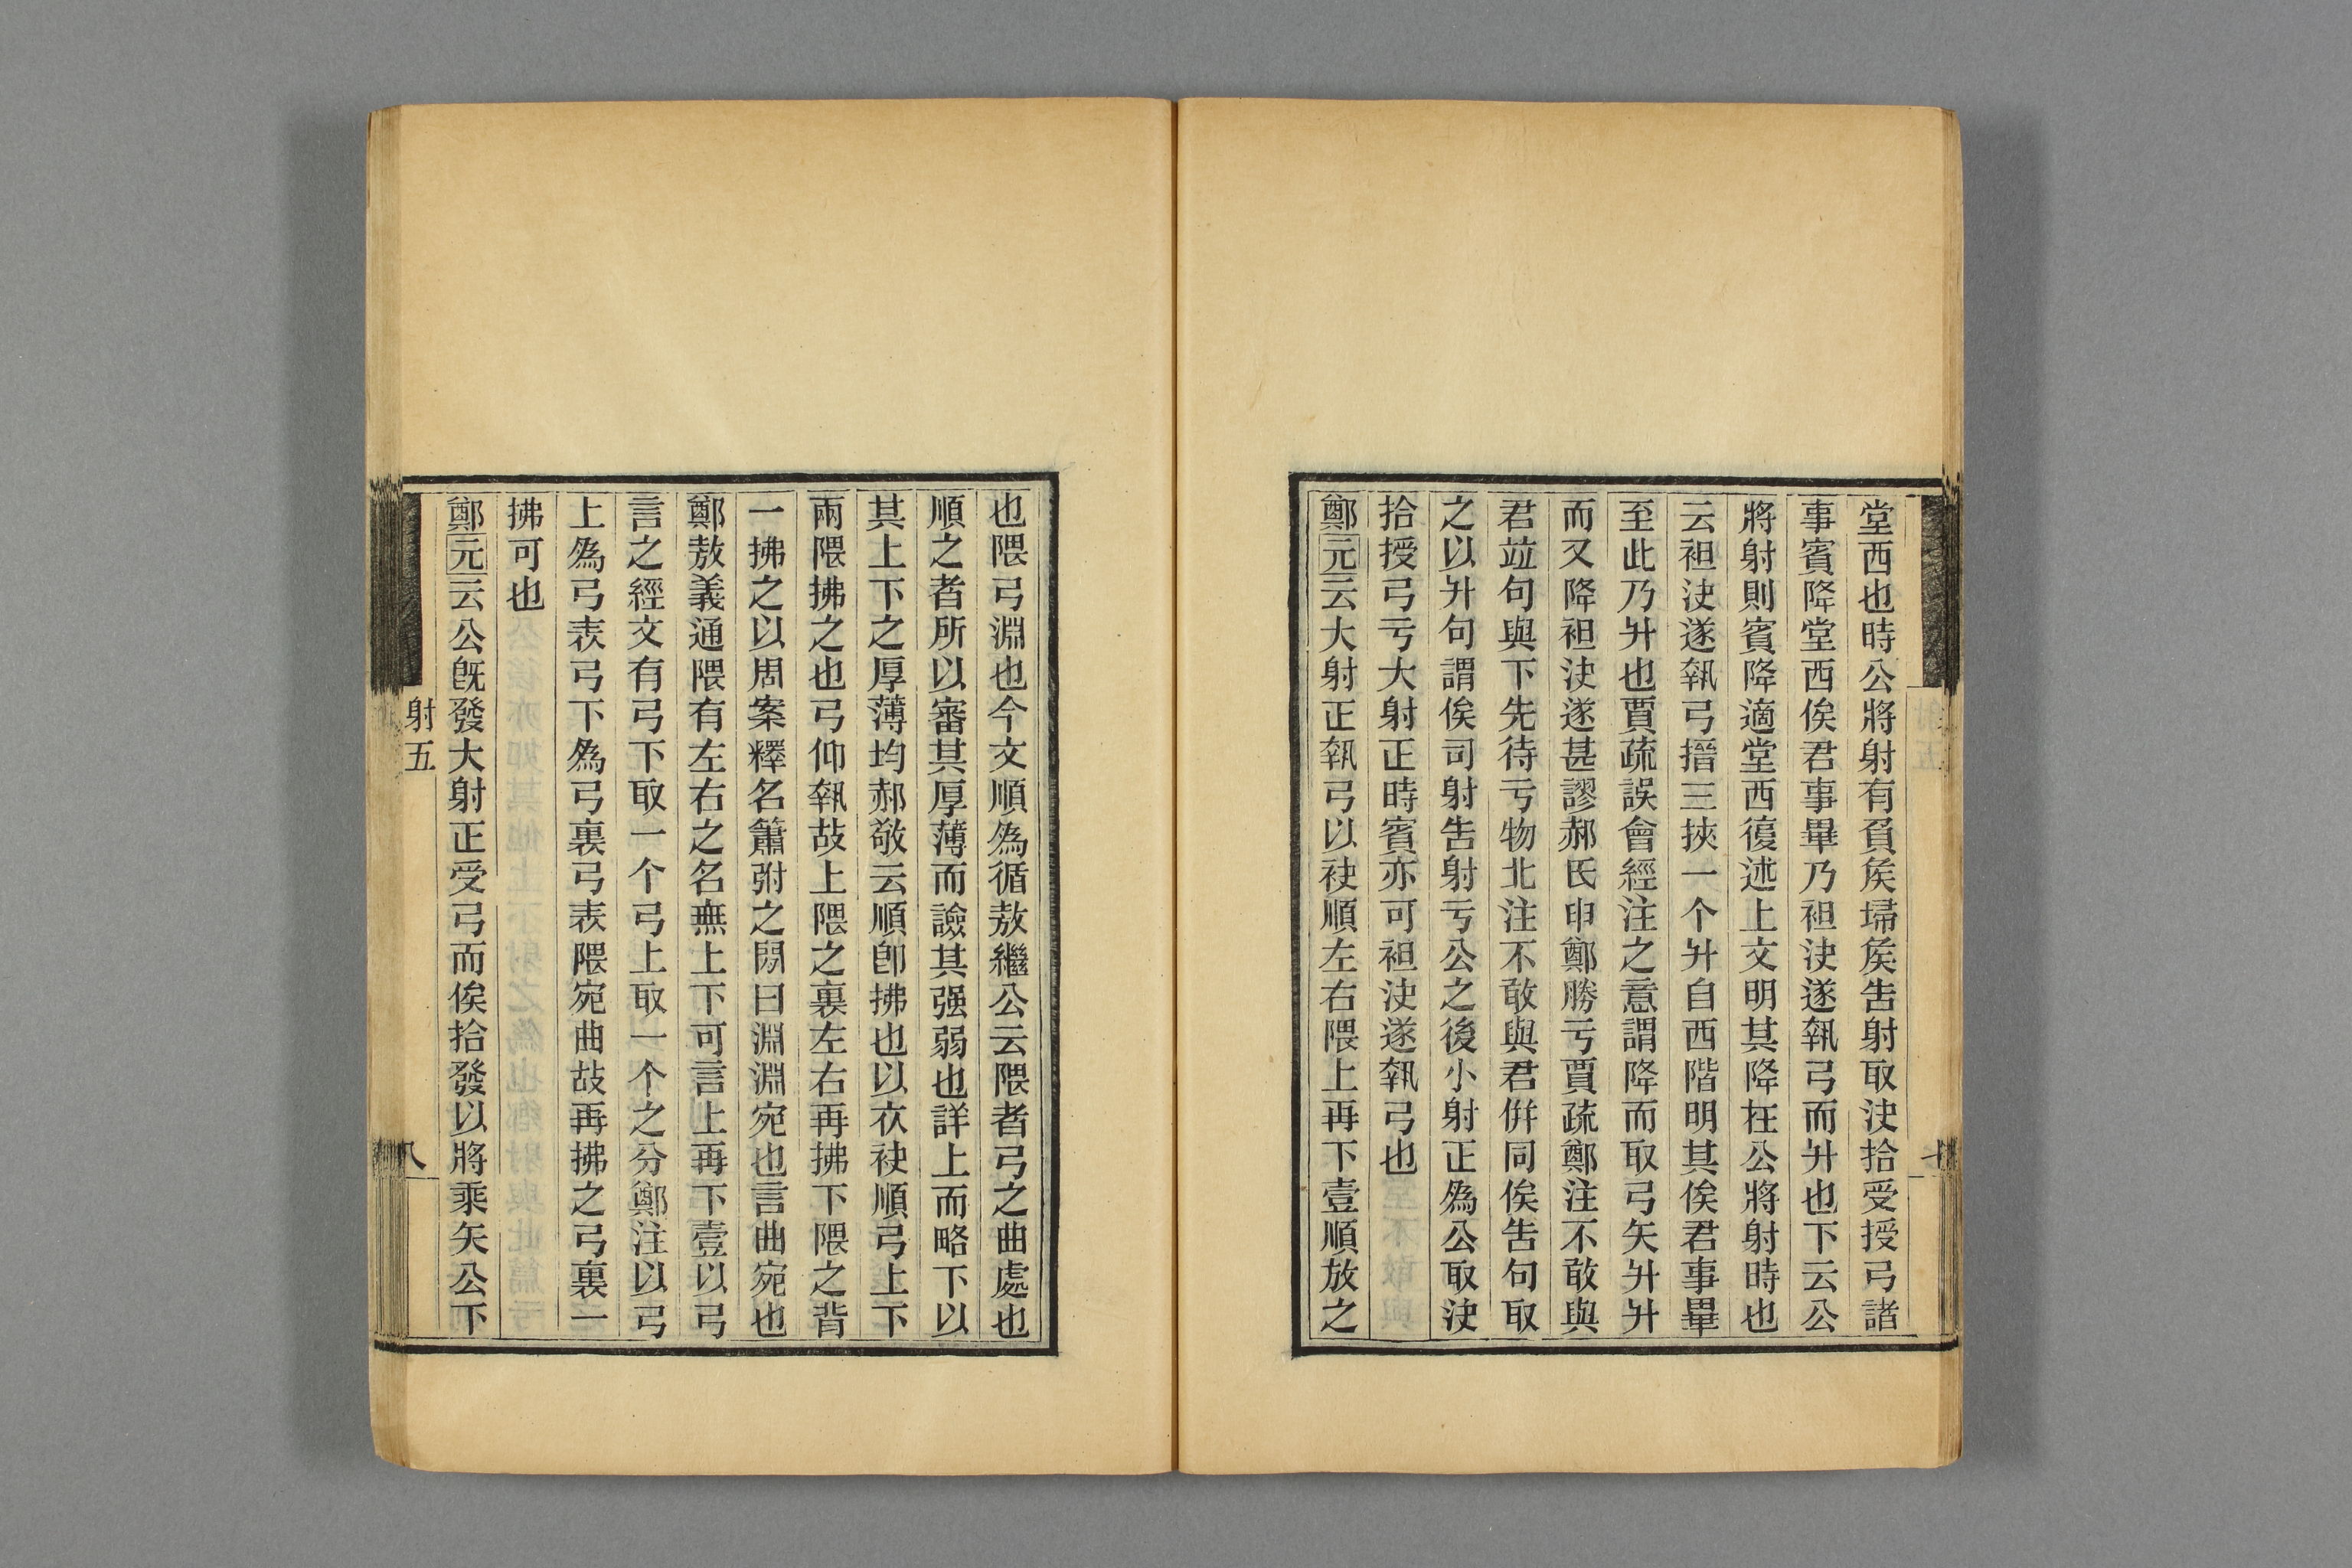 堂西也時公將射有負矦埽矦告射取決拾受授弓諸
事賓降堂西俟君事畢乃袒決遂執弓而升也下云公
將射則賓降適堂西復述上文明其降在公將射時也
云袒決遂執弓搢三挾一个升自西階明其俟君事畢
至此乃升也賈疏誤會經注之意謂降而取弓矢升升
而又降袒決遂甚謬郝氏申鄭勝亏賈疏鄭注不敢與
君竝句與下先待亏物北注不敢與君併同俟告句取
之以升句謂俟司射告射亏公之後小射正爲公取決
拾授弓亏大射正時賓亦可袒決遂執弓也
鄭元云大射正執弓以袂順左右隈上再下壹順放之
也隈弓淵也今文順爲循敖繼公云隈者弓之曲處也
順之者所以審其厚薄而譣其强弱也詳上而略下以
其上下之厚薄均郝敬云順卽拂也以衣袂順弓上下
兩隈拂之也弓仰執故上隈之裏左右再拂下隈之背
一拂之以周案釋名簫弣之閒曰淵淵宛也言曲宛也
鄭敖義通隈有左右之名無上下可言上再下壹以弓
言之經文有弓下取一个弓上取一个之分鄭注以弓
上爲弓表弓下爲弓裏弓表隈宛曲故再拂之弓裏一
拂可也
鄭元云公既發大射正受弓而俟拾發以將乘矢公下
射五
八